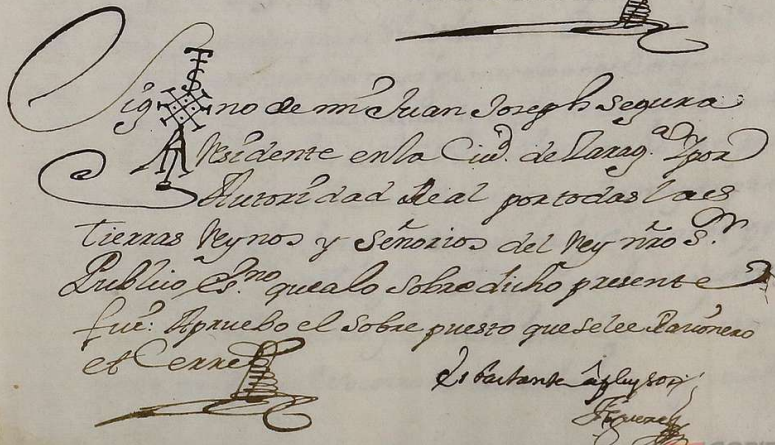 Sig no de mi Juan Joseph Segura
Residente en la Ciud. de Zarag.a y por
Autoridad Real por todas las
tierras Reynos y Señorios del Rey nro S.r
Publico Es.no que a lo sobredicho presente
fui: Apruebo el sobre puesto que se lee Racionero
et Cerre
Es bastante